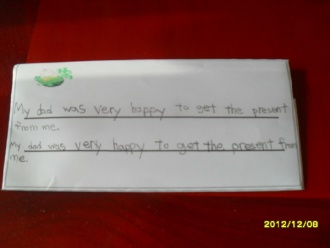 My dad was very happy to get the present
from me.
my dad was very happy to get the present from
me.
2012/12/08